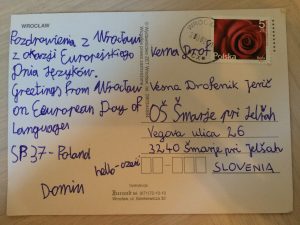 WROCŁAW
Pozdrowienia z Wrocławia
z okazji Europejskiego
Dnia Języków.
Greetings from Wrocław
on Eouropean Day of
Languages
SP 37 - Poland
hello - cześć
Domin
WROCŁAW
5
Polska
Vesna Drofenik Jerič
OŠ Šmarje pri Jelšah
Vegova ulica 26
3240 Šmarje pri Jelšah
SLOVENIA